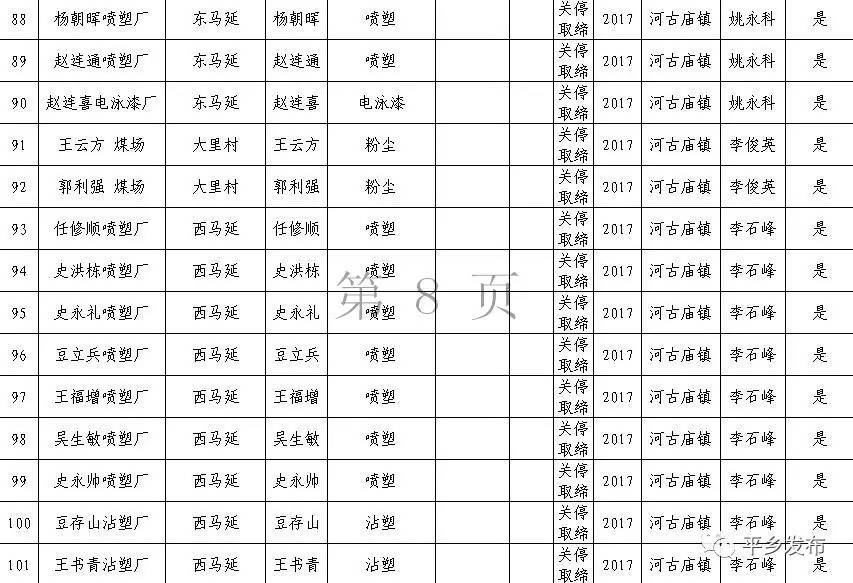 88 杨朝晖喷塑厂 东马延 杨朝晖 喷塑 关停取缔 2017 河古庙镇 姚永科 是
89 赵连通喷塑厂 东马延 赵连通 喷塑 关停取缔 2017 河古庙镇 姚永科 是
90 赵连喜电泳漆厂 东马延 赵连喜 电泳漆 关停取缔 2017 河古庙镇 姚永科 是
91 王云方 煤场 大里村 王云方 粉尘 关停取缔 2017 河古庙镇 李俊英 是
92 郭利强 煤场 大里村 郭利强 粉尘 关停取缔 2017 河古庙镇 李俊英 是
93 任修顺喷塑厂 西马延 任修顺 喷塑 关停取缔 2017 河古庙镇 李石峰 是
94 史洪栋喷塑厂 西马延 史洪栋 喷塑 关停取缔 2017 河古庙镇 李石峰 是
第 8 页
95 史永礼喷塑厂 西马延 史永礼 喷塑 关停取缔 2017 河古庙镇 李石峰 是
96 豆立兵喷塑厂 西马延 豆立兵 喷塑 关停取缔 2017 河古庙镇 李石峰 是
97 王福增喷塑厂 西马延 王福增 喷塑 关停取缔 2017 河古庙镇 李石峰 是
98 吴生敏喷塑厂 西马延 吴生敏 喷塑 关停取缔 2017 河古庙镇 李石峰 是
99 史永帅喷塑厂 西马延 史永帅 喷塑 关停取缔 2017 河古庙镇 李石峰 是
100 豆存山沾塑厂 西马延 豆存山 沾塑 关停取缔 2017 河古庙镇 李石峰 是
平乡发布
101 王书青沾塑厂 西马延 王书青 沾塑 关停取缔 2017 河古庙镇 李石峰 是